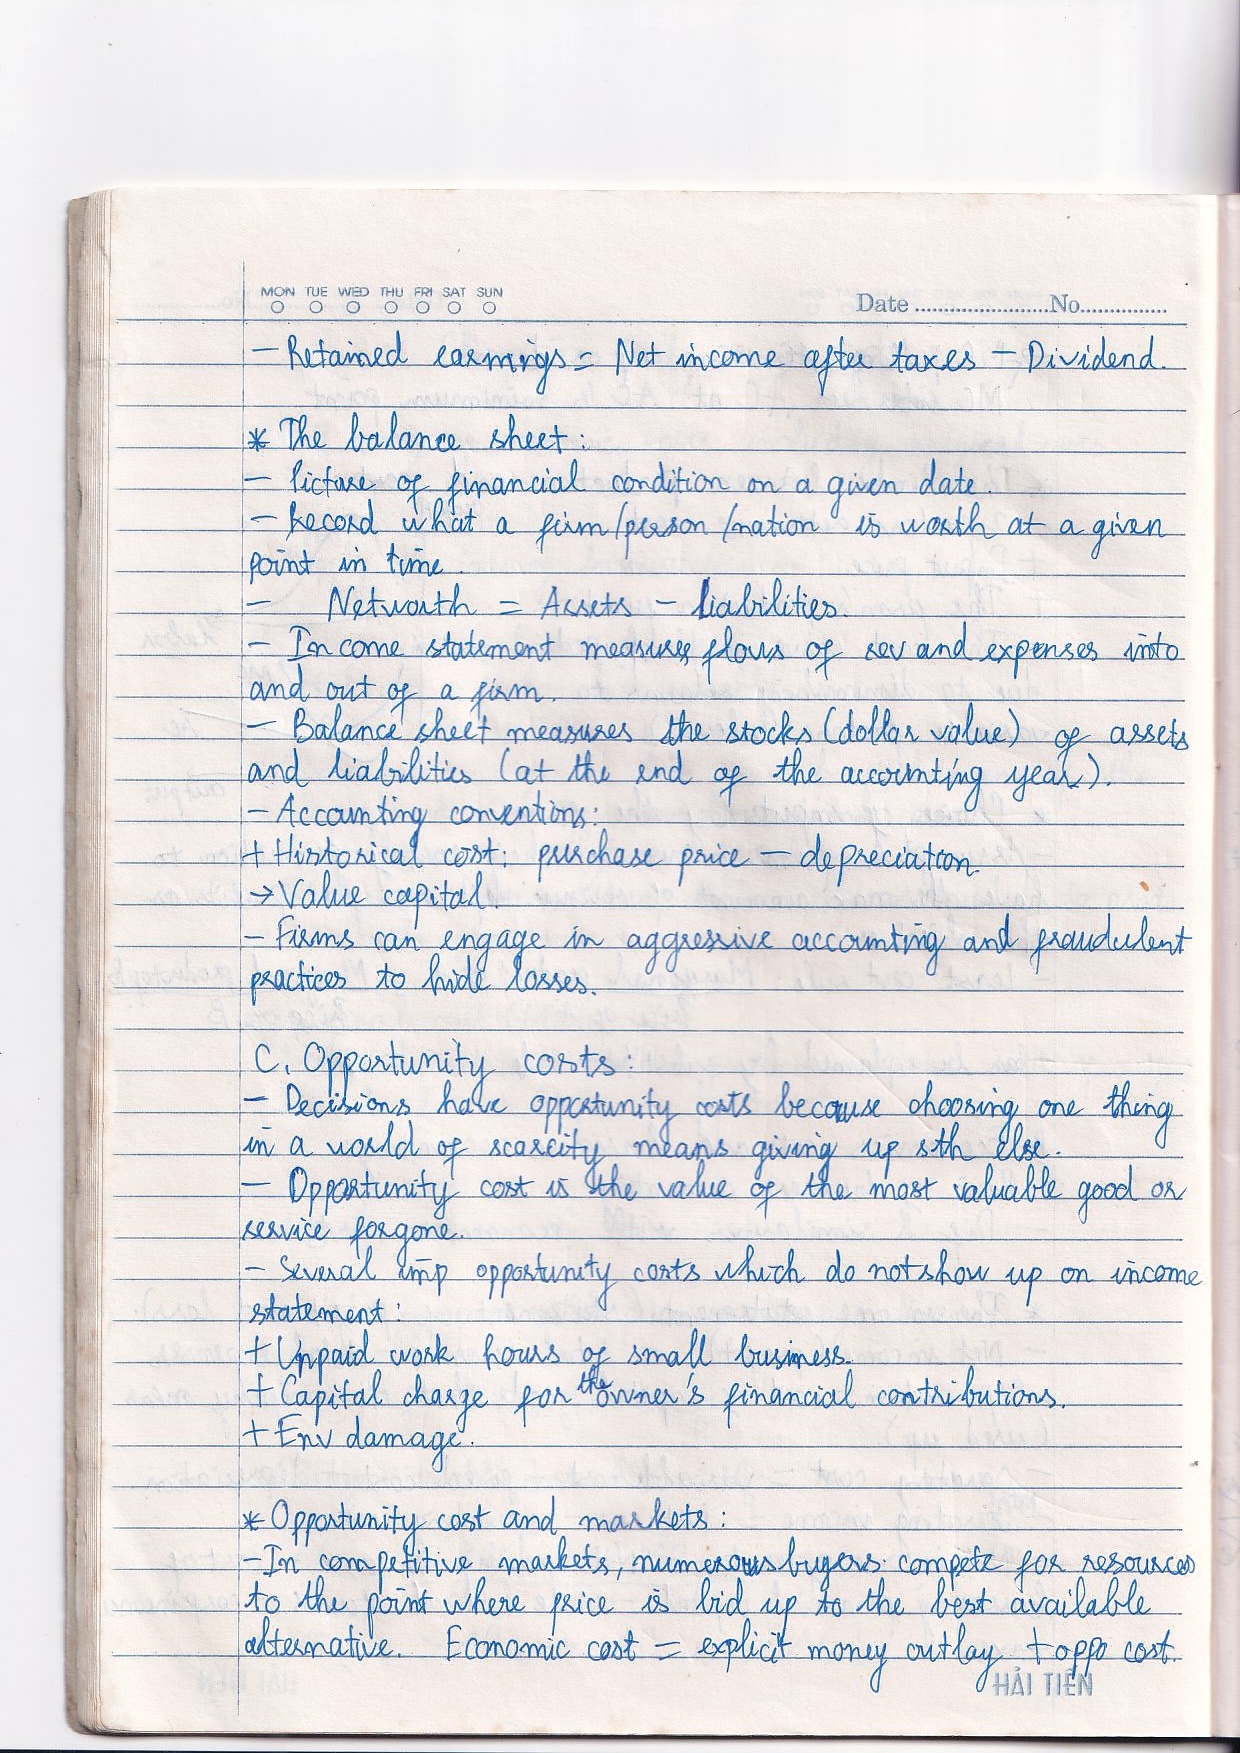 MON TUE WED THU FRI SAT SUN
Date ........................No...............
- Retained earnings = Net income after taxes - Dividend.
* The balance sheet :
- Picture of financial condition on a given date.
- Record what a firm/person/nation is worth at a given
point in time.
- Networth = Assets - liabilities.
- Income statement measures flows of rev and expenses into
and out of a firm.
- Balance sheet measures the stocks (dollar value) of assets
and liabilities (at the end of the accounting year).
- Accounting conventions:
+ Historical cost: purchase price - depreciation.
→ Value capital.
- Firms can engage in aggressive accounting and fraudulent
practices to hide losses.
C. Opportunity costs :
- Decisions have opportunity costs because choosing one thing
in a world of scarcity means giving up sth else.
- Opportunity cost is the value of the most valuable good or
service forgone.
- Several imp opportunity costs which do not show up on income
statement :
+ Unpaid work hours of small business.
+ Capital charge for the owner's financial contributions.
+ Env damage.
* Opportunity cost and markets :
- In competitive markets, numerous buyers compete for resources
to the point where price is bid up to the best available
alternative. Economic cost = explicit money outlay + oppo cost.
HẢI TIẾN